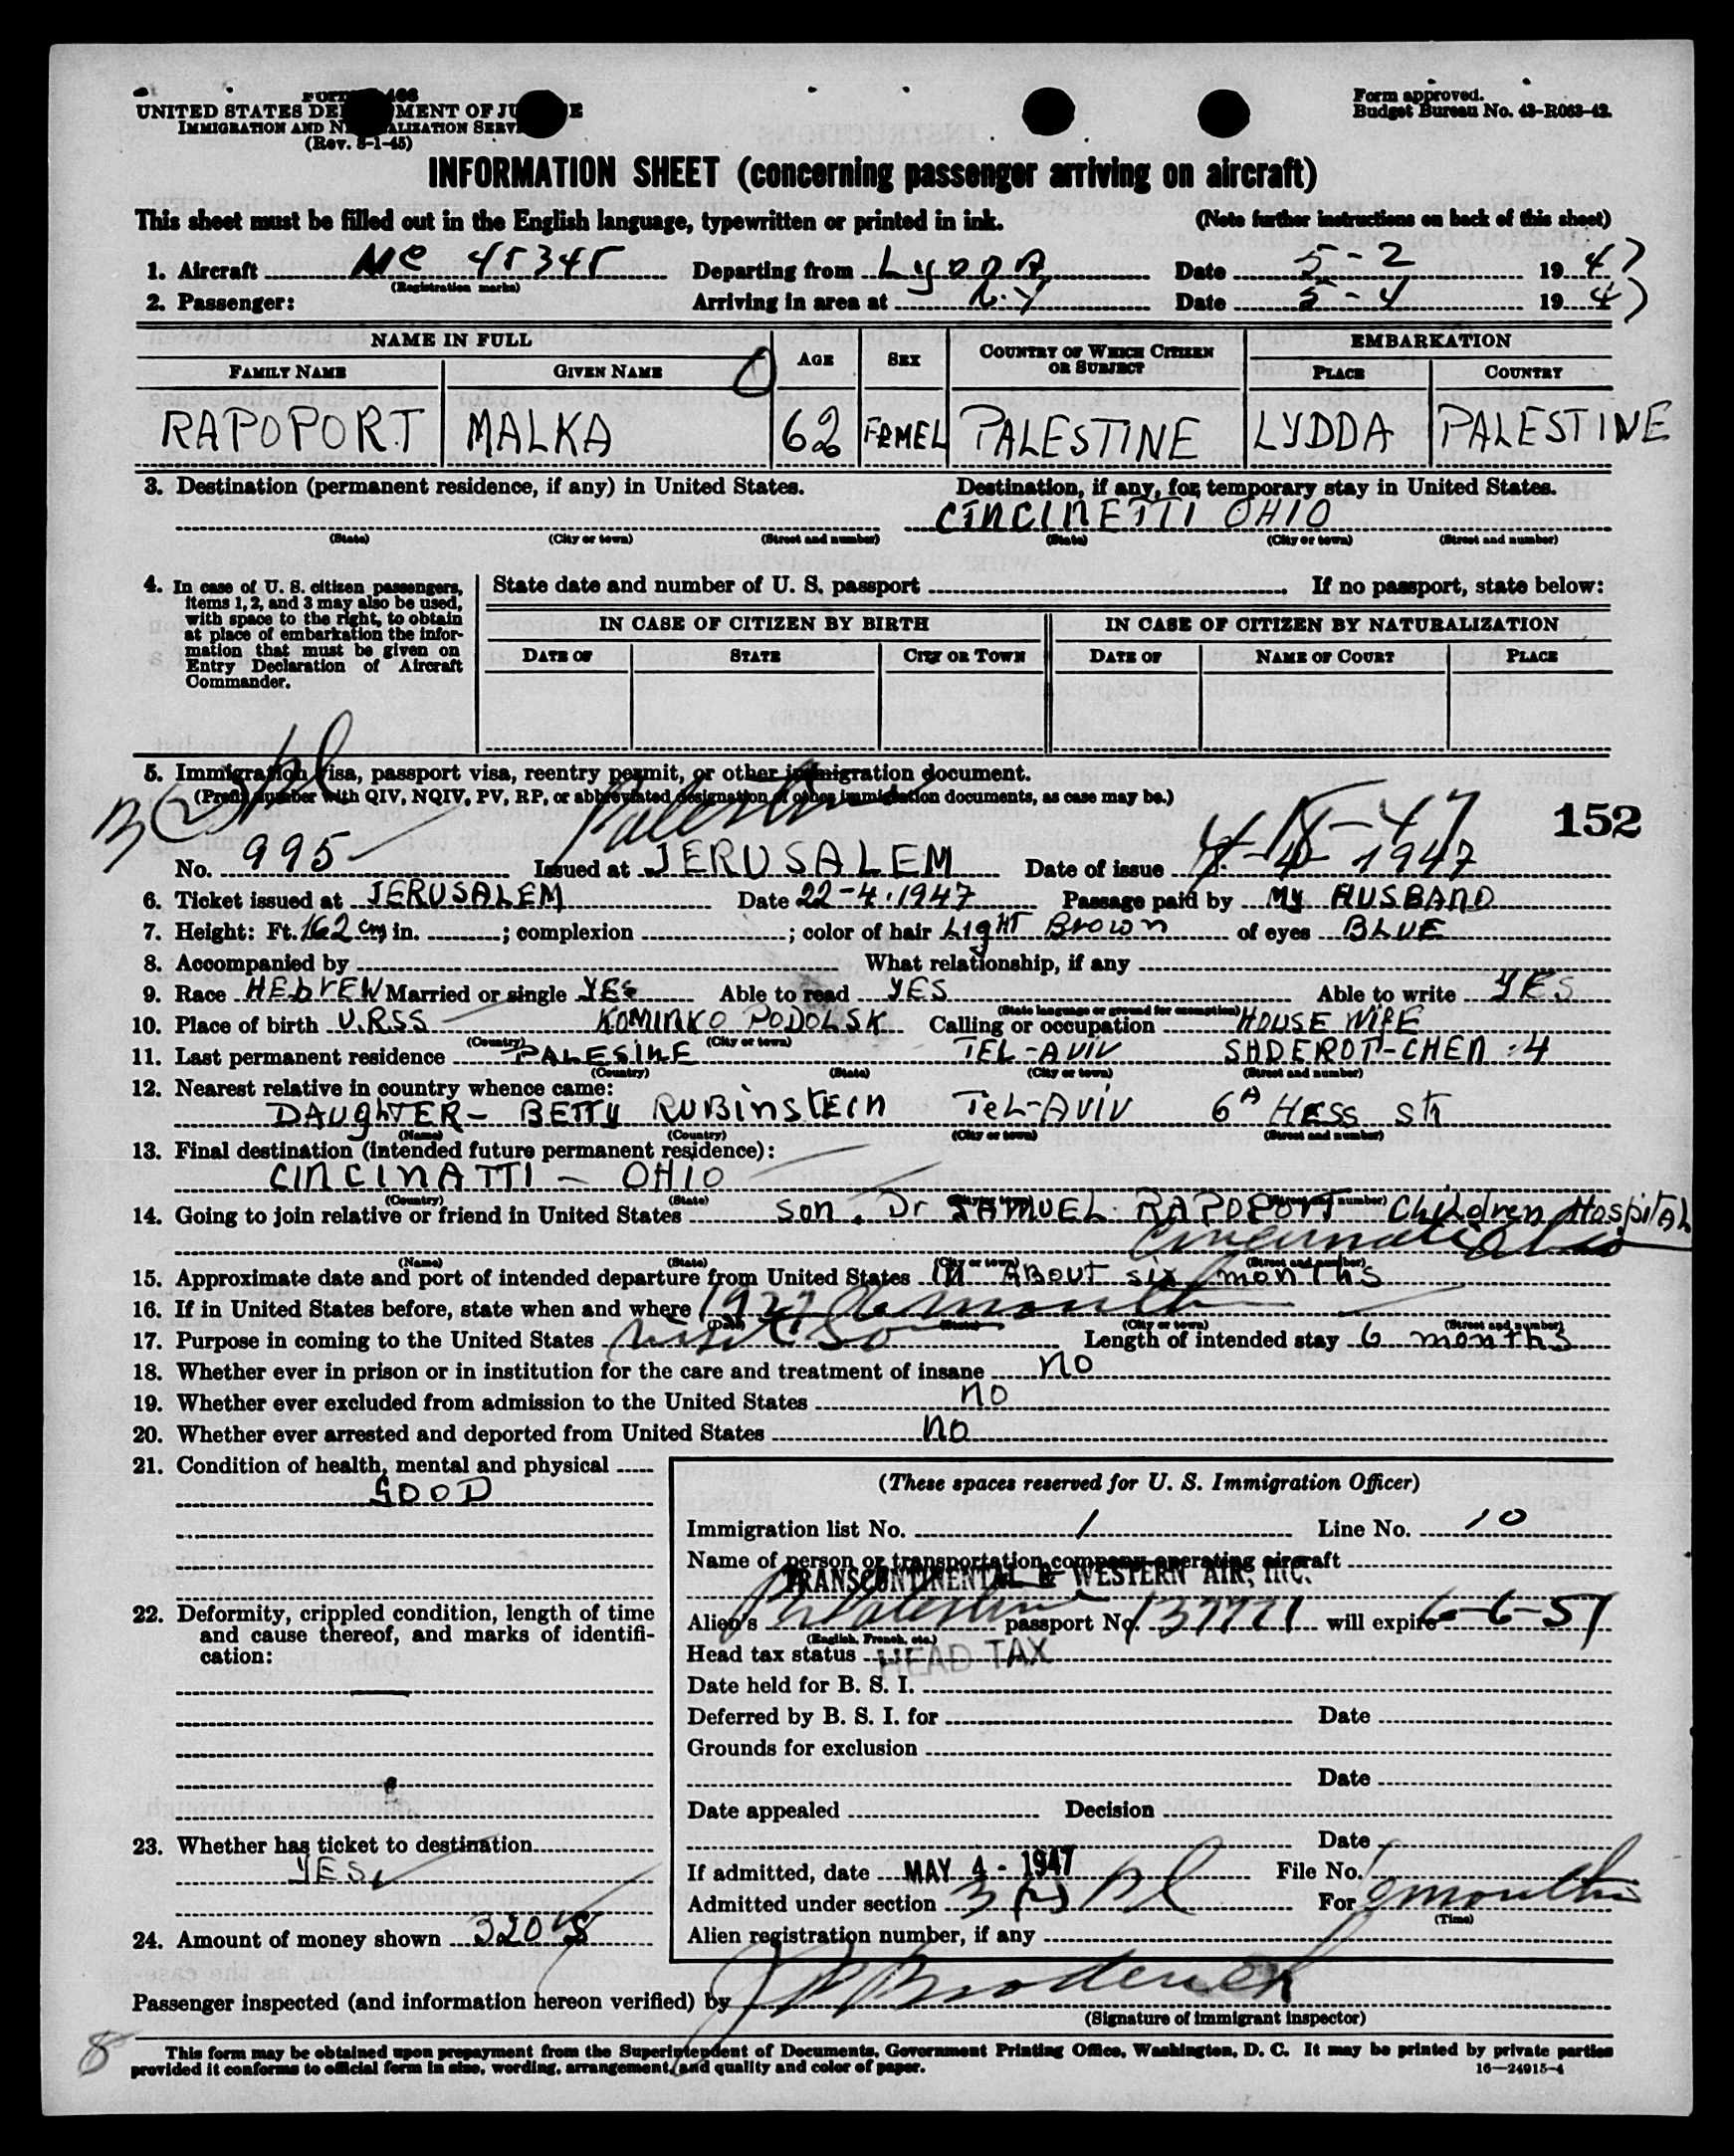 UNITED STATES DE MENT OF JU E
IMMIGRATION AND N ALIZATION SERV
(Rev. 8-1-45)
Form approved.
Budget Bureau No. 43-R063-42.
INFORMATION SHEET (concerning passenger arriving on aircraft)
This sheet must be filled out in the English language, typewritten or printed in ink. (Note further instructions on back of this sheet)
1. Aircraft NC 45345 Departing from Lydda Date 5-2 1947
(Registration marks)
2. Passenger: Arriving in area at N.Y Date 5-4 1947
NAME IN FULL AGE SEX COUNTRY OF WHICH CITIZEN OR SUBJECT EMBARKATION
FAMILY NAME GIVEN NAME PLACE COUNTRY
RAPOPORT MALKA 62 FEMEL PALESTINE LYDDA PALESTINE
3. Destination (permanent residence, if any) in United States. Destination, if any, for temporary stay in United States.
CINCINETTI OHIO
(State) (City or town) (Street and number) (State) (City or town) (Street and number)
4. In case of U. S. citizen passengers, items 1, 2, and 3 may also be used, with space to the right, to obtain at place of embarkation the information that must be given on Entry Declaration of Aircraft Commander.
State date and number of U. S. passport . If no passport, state below:
IN CASE OF CITIZEN BY BIRTH IN CASE OF CITIZEN BY NATURALIZATION
DATE OF STATE CITY OR TOWN DATE OF NAME OF COURT PLACE
5. Immigration visa, passport visa, reentry permit, or other immigration document.
(Prefix number with QIV, NQIV, PV, RP, or abbreviated designation of other immigration documents, as case may be.)
3(2) Palestine 4-18-47 152
No. 995 Issued at JERUSALEM Date of issue 1947
6. Ticket issued at JERUSALEM Date 22-4.1947 Passage paid by My HUSBAND
7. Height: Ft. 162 cm in. ; complexion ; color of hair LigHT Brown of eyes BLUE
8. Accompanied by What relationship, if any
9. Race HEbrEW Married or single YES Able to read YES Able to write YES
(State language or ground for exemption)
10. Place of birth U.R.S.S KOMINKO PODOLSK Calling or occupation HOUSE WIFE
(Country) (City or town)
11. Last permanent residence PALESINE TEL-AVIV SHDEROT-CHEN :4
(Country) (State) (City or town) (Street and number)
12. Nearest relative in country whence came:
DAUGHTER- BETTY RUBINSTEIN TEL-AVIV 6A HESS str
(Name) (Country) (City or town) (Street and number)
13. Final destination (intended future permanent residence):
CINCINATTI - OHIO
(Country) (State) (City or town) (Street and number)
14. Going to join relative or friend in United States son. Dr SAMUEL RAPOPORT Children Hospital
Cincinnati Ohio
(Name) (State) (City or town) (Street and number)
15. Approximate date and port of intended departure from United States IN ABOUT six months
16. If in United States before, state when and where months
(Date) (State) (City or town) (Street and number)
17. Purpose in coming to the United States visit Son Length of intended stay 6 months
18. Whether ever in prison or in institution for the care and treatment of insane no
19. Whether ever excluded from admission to the United States no
20. Whether ever arrested and deported from United States no
21. Condition of health, mental and physical
GOOD
22. Deformity, crippled condition, length of time and cause thereof, and marks of identification:
23. Whether has ticket to destination
YES
24. Amount of money shown 320 $
(These spaces reserved for U. S. Immigration Officer)
Immigration list No. 1 Line No. 10
Name of person or transportation company operating aircraft
TRANSCONTINENTAL & WESTERN AIR, INC.
Alien's Palestine passport No. 137771 will expire 6-6-51
(English, French, etc.)
Head tax status HEAD TAX
Date held for B. S. I.
Deferred by B. S. I. for Date
Grounds for exclusion
Date
Date appealed Decision
Date
If admitted, date MAY 4 - 1947 File No.
Admitted under section 3(2) For 6 months
(Time)
Alien registration number, if any
Passenger inspected (and information hereon verified) by Broderick
(Signature of immigrant inspector)
8
This form may be obtained upon prepayment from the Superintendent of Documents, Government Printing Office, Washington, D. C. It may be printed by private parties
provided it conforms to official form in size, wording, arrangement, and quality and color of paper. 16—24915-4